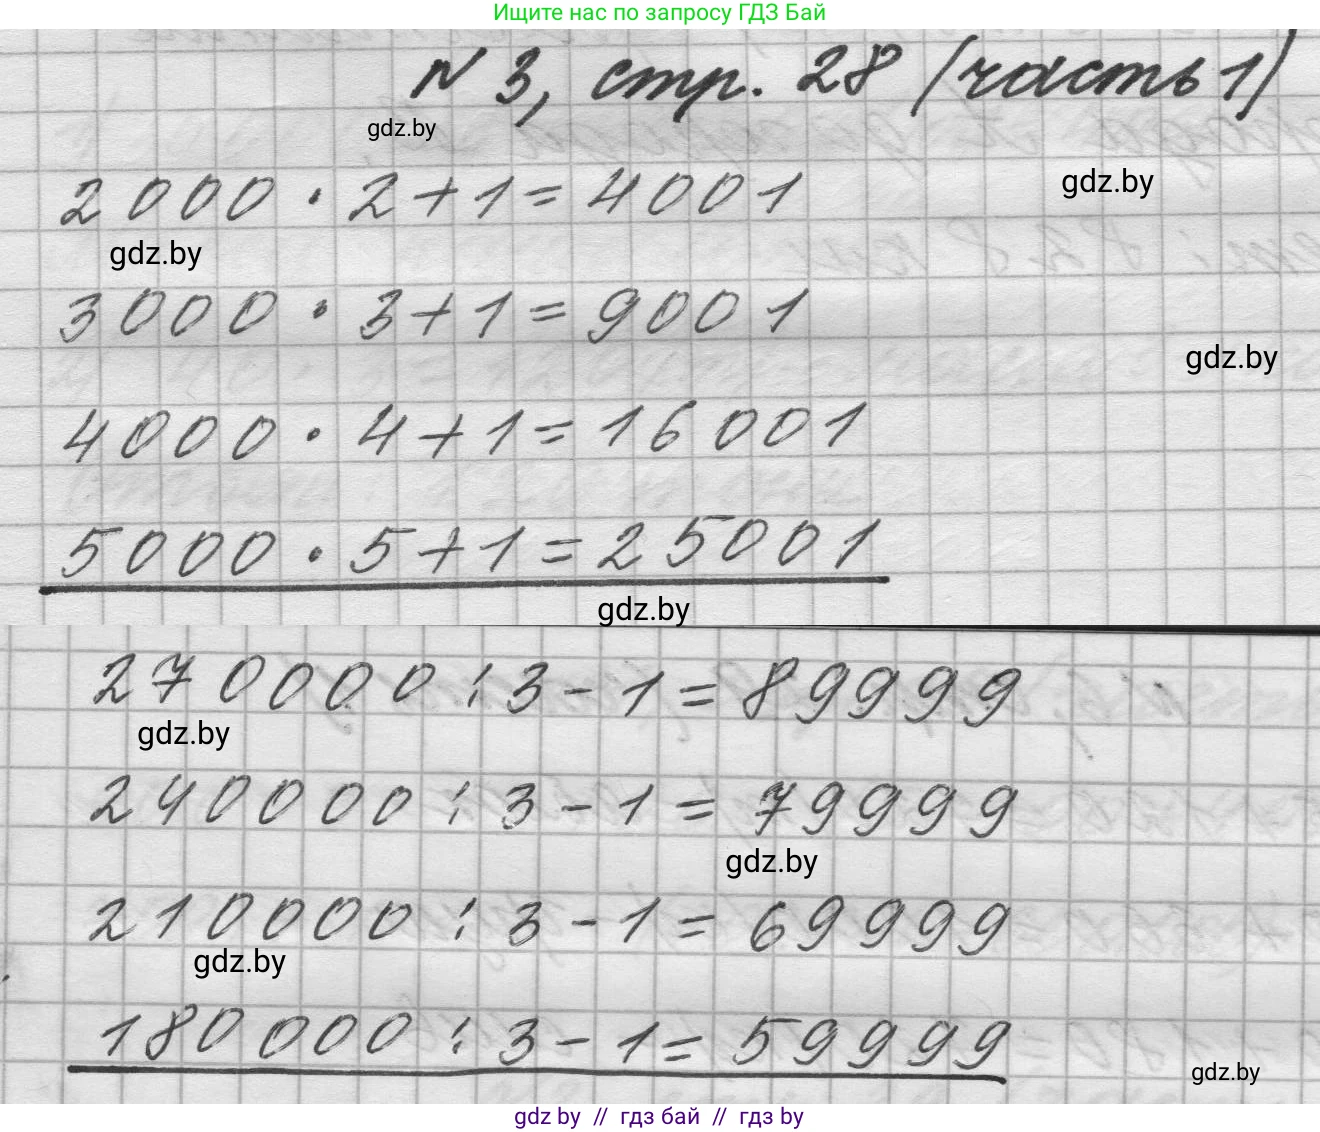 Ищите нас по запросу ГДЗ Бай
N 3, стр. 28 (часть 1)
gdz.by
2000 · 2 + 1 = 4001
gdz.by
gdz.by
3000 · 3 + 1 = 9001
gdz.by
4000 · 4 + 1 = 16001
5000 · 5 + 1 = 25001
gdz.by
270000 : 3 - 1 = 89999
gdz.by
240000 : 3 - 1 = 79999
gdz.by
210000 : 3 - 1 = 69999
gdz.by
180000 : 3 - 1 = 59999
gdz.by
gdz by // гдз бай // гдз by